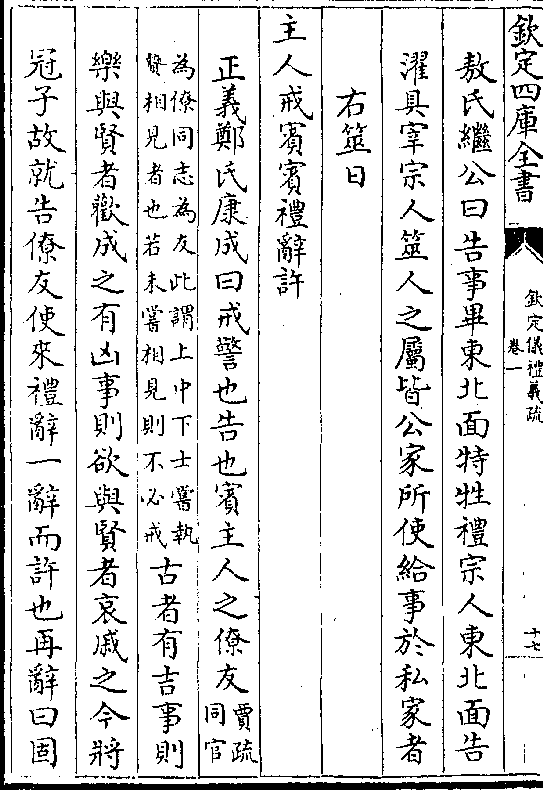 欽定四庫全書
欽定儀禮義疏
卷一
十七
敖氏繼公曰告事畢東北面特牲禮宗人東北面告
濯具宰宗人筮人之屬皆公家所使給事於私家者
右筮日
主人戒賓賓禮辭許
正義鄭氏康成曰戒警也告也賓主人之僚友賈疏同官
為僚同志為友此謂上中下士嘗執
贄相見者也若未嘗相見則不必戒古者有吉事則
樂與賢者歡成之有凶事則欲與賢者哀戚之今將
冠子故就告僚友使來禮辭一辭而許也再辭曰固